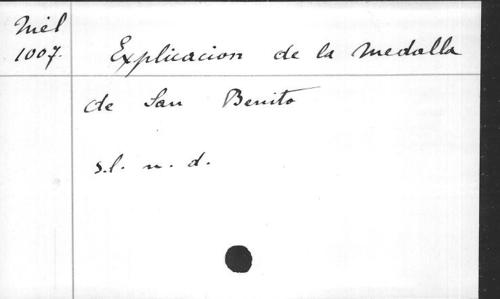 Miél
1007.
Explicacion de la medalla
de San Benito
s.l. n. d.